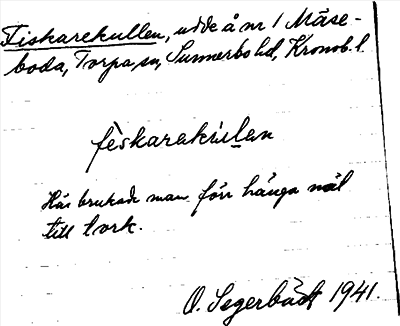 Fiskarekullen, udde å nr 1 Måse-
boda, Torpa sn, Sunnerbo hd, Kronob. l.
feskarakulen
Här brukade man förr hänga nät
till tork.
O. Segerbäck 1941.